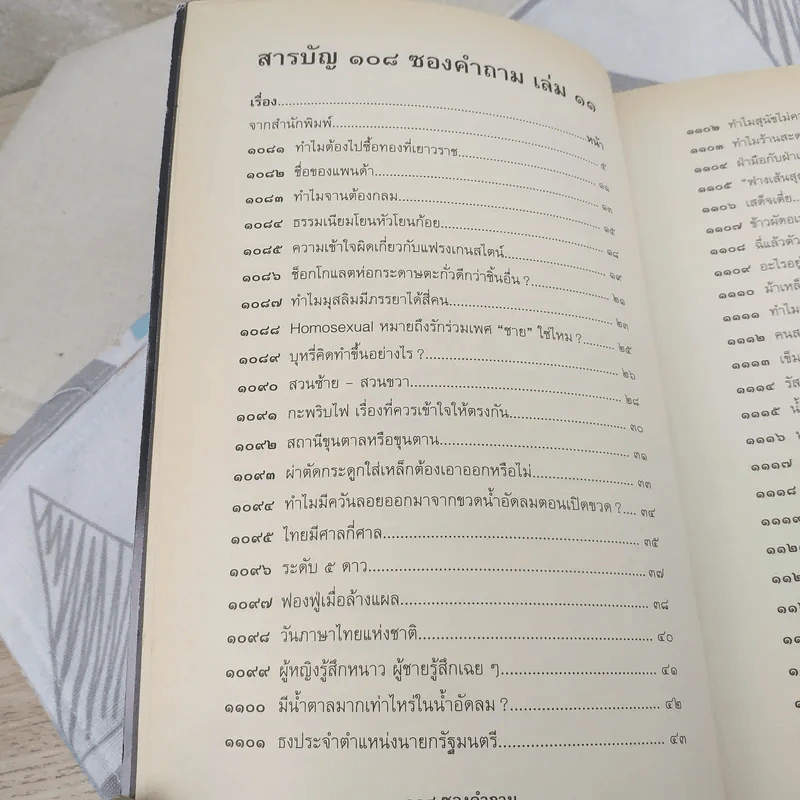 สารบัญ ๑๐๘ ซองคำถาม เล่ม ๑๑
เรื่อง..........หน้า
จากสำนักพิมพ์..........๕
๑๐๘๑ ทำไมต้องไปซื้อทองที่เยาวราช..........๑๑
๑๐๘๒ ชื่อของแพนด้า..........๑๓
๑๐๘๓ ทำไมจานต้องกลม..........๑๕
๑๐๘๔ ธรรมเนียมโยนหัวโยนก้อย..........๑๘
๑๐๘๕ ความเข้าใจผิดเกี่ยวกับแฟรงเกนสไตน์..........๑๙
๑๐๘๖ ช็อกโกแลตห่อกระดาษตะกั่วดีกว่าชิ้นอื่น ?..........๒๑
๑๐๘๗ ทำไมมุสลิมมีภรรยาได้สี่คน..........๒๓
๑๐๘๘ Homosexual หมายถึงรักร่วมเพศ “ชาย” ใช่ไหม ?..........๒๕
๑๐๘๙ บุหรี่คิดทำขึ้นอย่างไร ?..........๒๖
๑๐๙๐ สวนซ้าย – สวนขวา..........๒๘
๑๐๙๑ กะพริบไฟ เรื่องที่ควรเข้าใจให้ตรงกัน..........๓๐
๑๐๙๒ สถานีขุนตาลหรือขุนตาน..........๓๑
๑๐๙๓ ผ่าตัดกระดูกใส่เหล็กต้องเอาออกหรือไม่..........๓๓
๑๐๙๔ ทำไมมีควันลอยออกมาจากขวดน้ำอัดลมตอนเปิดขวด ?....๓๔
๑๐๙๕ ไทยมีศาลกี่ศาล..........๓๕
๑๐๙๖ ระดับ ๕ ดาว..........๓๗
๑๐๙๗ ฟองฟู่เมื่อล้างแผล..........๓๘
๑๐๙๘ วันภาษาไทยแห่งชาติ..........๔๐
๑๐๙๙ ผู้หญิงรู้สึกหนาว ผู้ชายรู้สึกเฉย ๆ..........๔๑
๑๑๐๐ มีน้ำตาลมากเท่าไหร่ในน้ำอัดลม ?..........๔๒
๑๑๐๑ ธงประจำตำแหน่งนายกรัฐมนตรี..........๔๓
๑๐๘ ซองคำถาม
๑๑๐๒ ทำไมสุนัขไม่
๑๑๐๓ ทำไมร้านสะ
๑๑๐๔ ฝ่ามือกับฝ่า
๑๑๐๕ “ฟางเส้น
๑๑๐๖ เสด็จเตี่ย..
๑๑๐๗ ข้าวผัด
๑๑๐๘ ฉี่แล้วตัว
๑๑๐๙ อะไรอยู่
๑๑๑๐ ม้าเหล็
๑๑๑๑ ทำไม
๑๑๑๒ คนส
๑๑๑๓ เข็ม
๑๑๑๔ รัส
๑๑๑๕ น้ำ
๑๑๑๖
๑๑๑๗
๑๑๑๘
๑๑๑๙